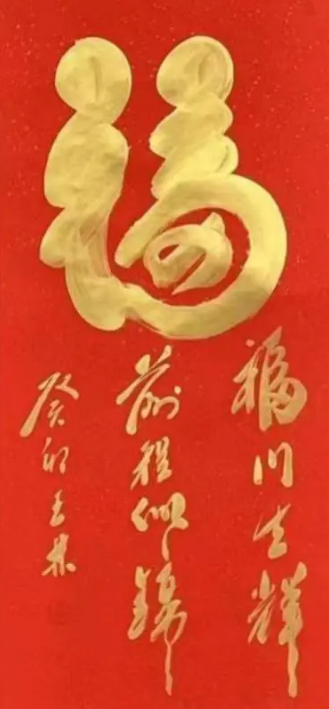 福
福门生辉
前程似锦
癸卯王林